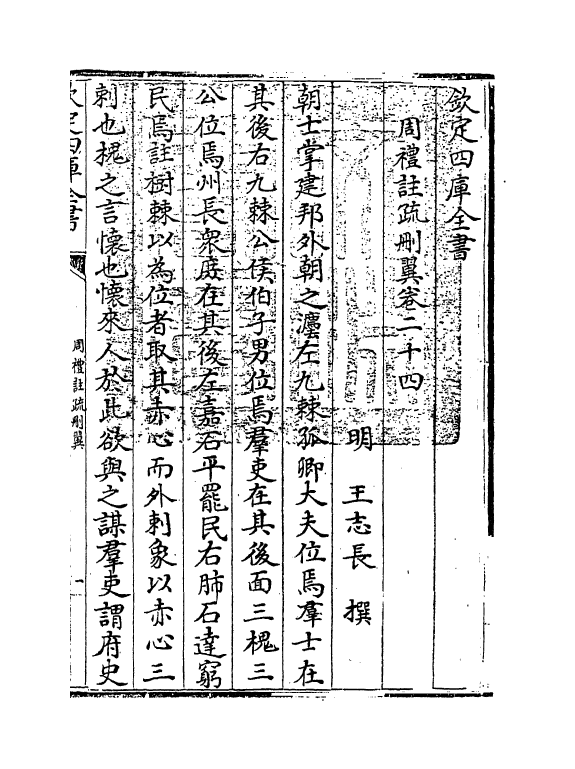 欽定四庫全書
周禮註疏刪翼卷二十四
明 王志長 撰
朝士掌建邦外朝之灋左九棘孤卿大夫位焉羣士在
其後右九棘公侯伯子男位焉羣吏在其後面三槐三
公位焉州長衆庶在其後左嘉石平罷民右肺石達窮
民焉註樹棘以為位者取其赤心而外刺象以赤心三
刺也槐之言懷也懷來人於此欲與之謀羣吏謂府史
欽定四庫全書
周禮註疏刪翼
一